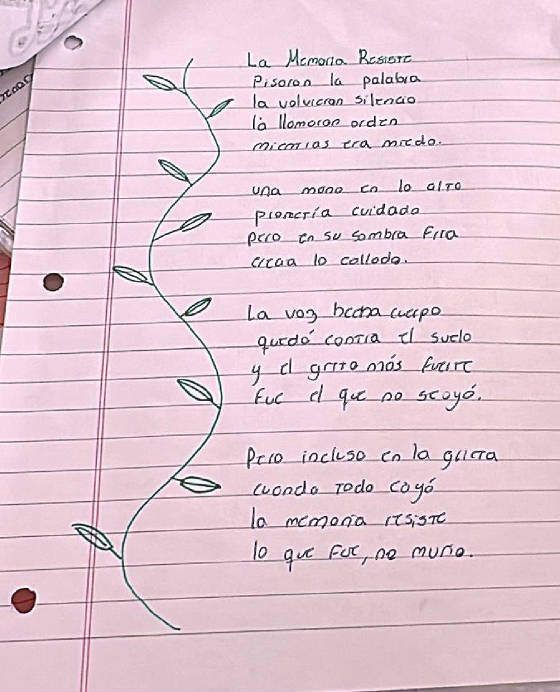 La Memoria Resiste
Pisaron la palabra
la volvieron silencio
la llamaron orden
mientras era miedo.
una mano en lo alto
prometía cuidado
pero en su sombra fría
crecía lo callado.
La voz hecha cuerpo
quedó contra el suelo
y el grito más fuerte
fue el que no se oyó.
Pero incluso en la grieta
cuando todo cayó
la memoria resiste
lo que fue, no murio.